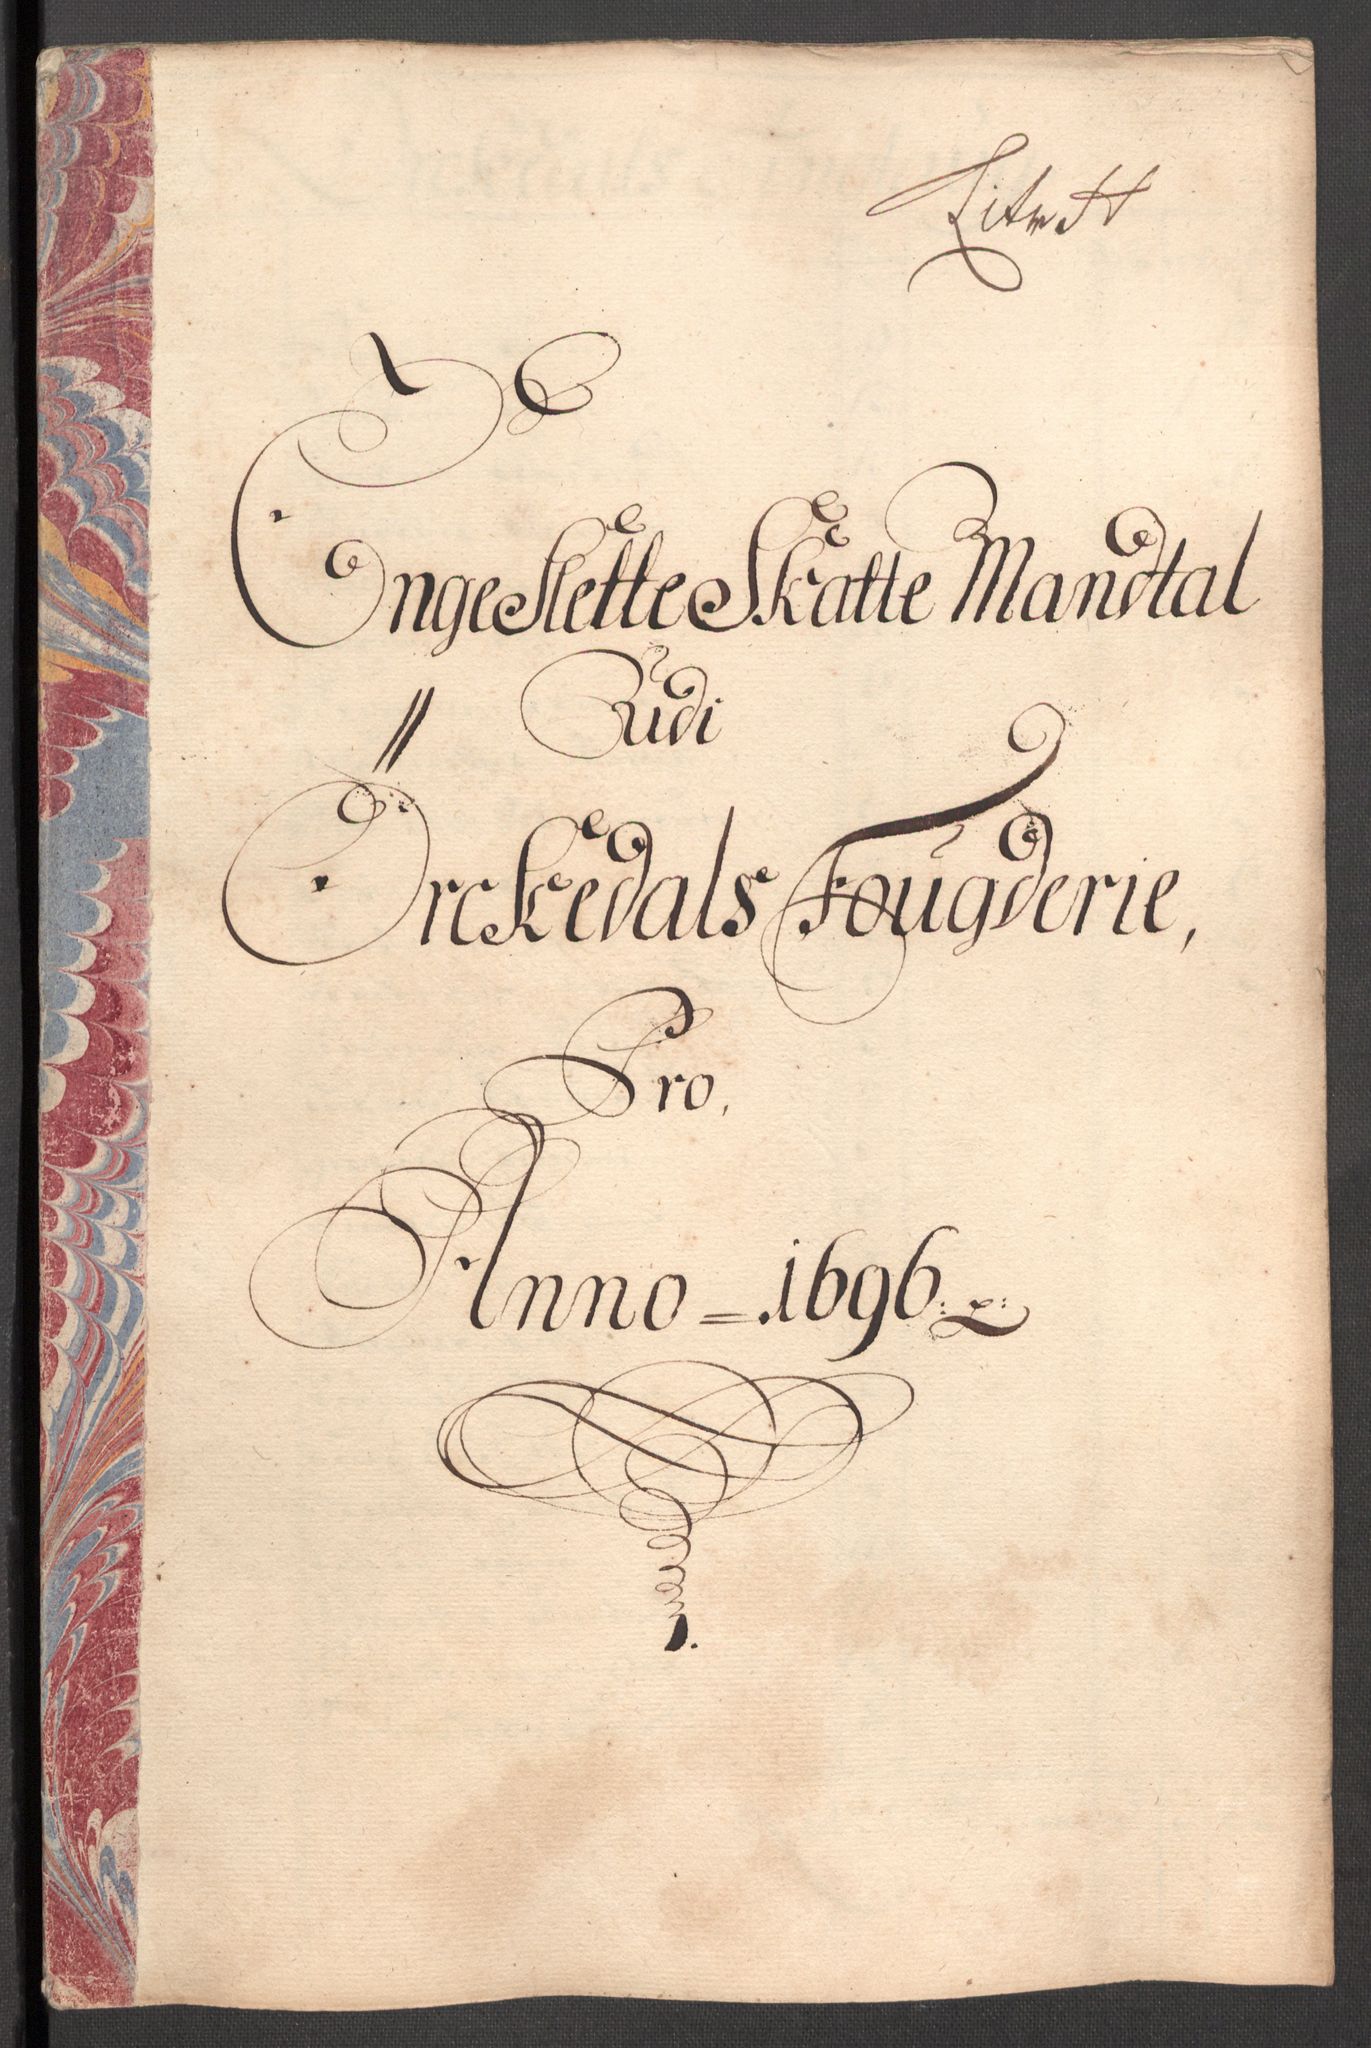 Litr H
Engeslette Skatte Mandtal
Udi
Orckedals Fougderie,
Pro,
Anno = 1696